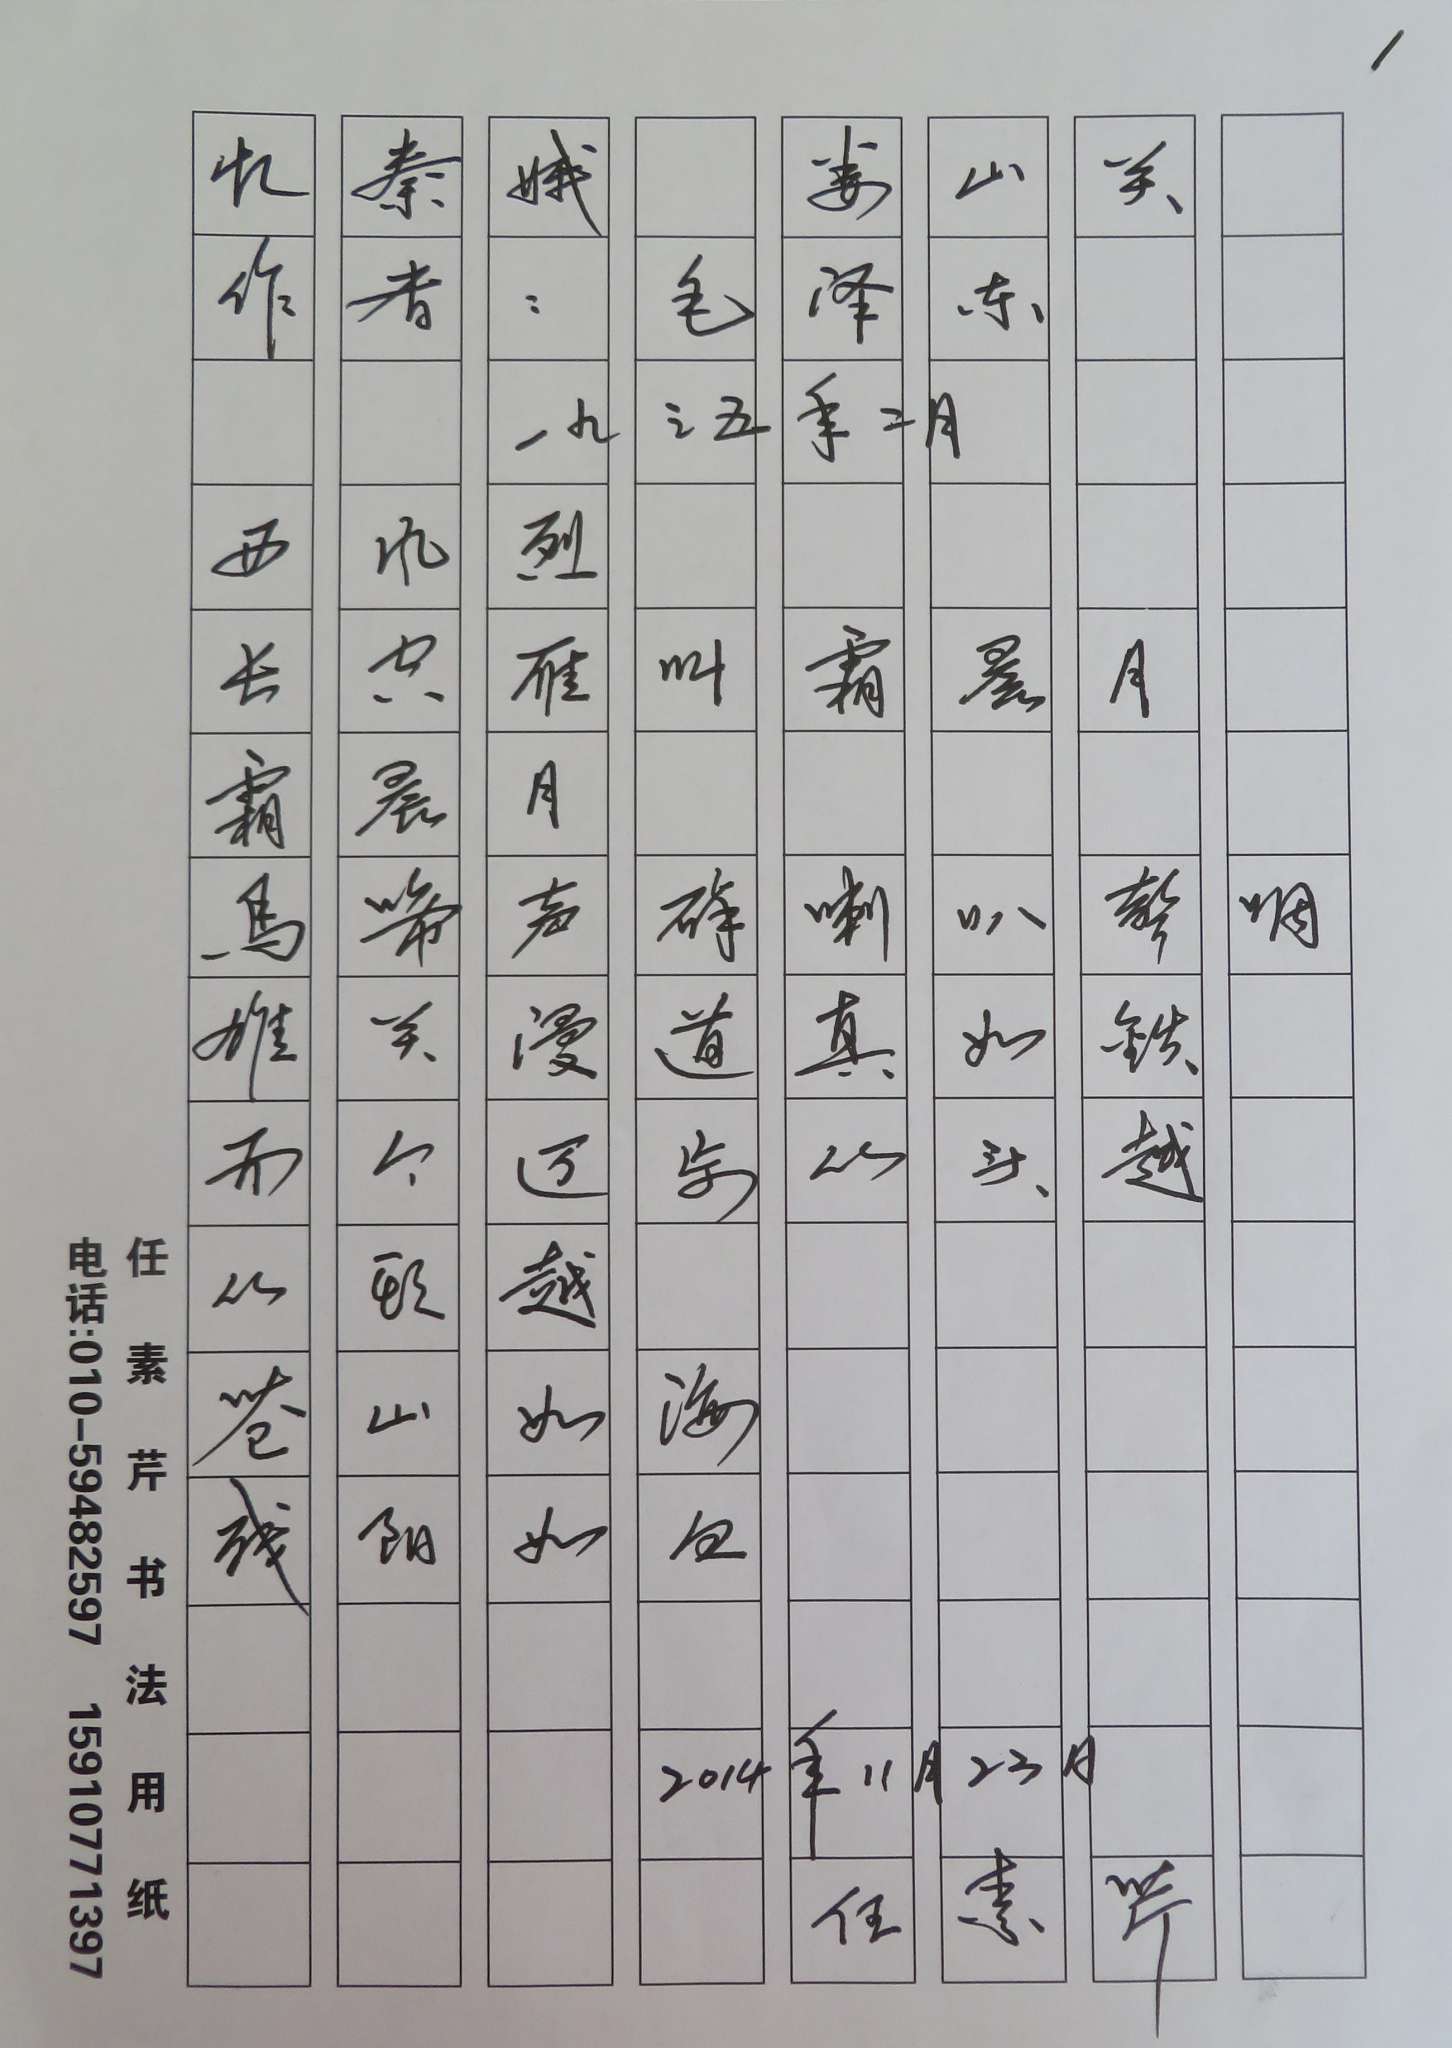 忆秦娥 娄山关
作者：毛泽东
一九三五年二月
西风烈
长空雁叫霜晨月
霜晨月
馬啼声碎喇叭声咽
雄关漫道真如铁
而今迈步从头越
从頭越
苍山如海
残阳如血
2014年11月23日
任素芹
任素芹书法用纸
电话:010-59482597 15910771397